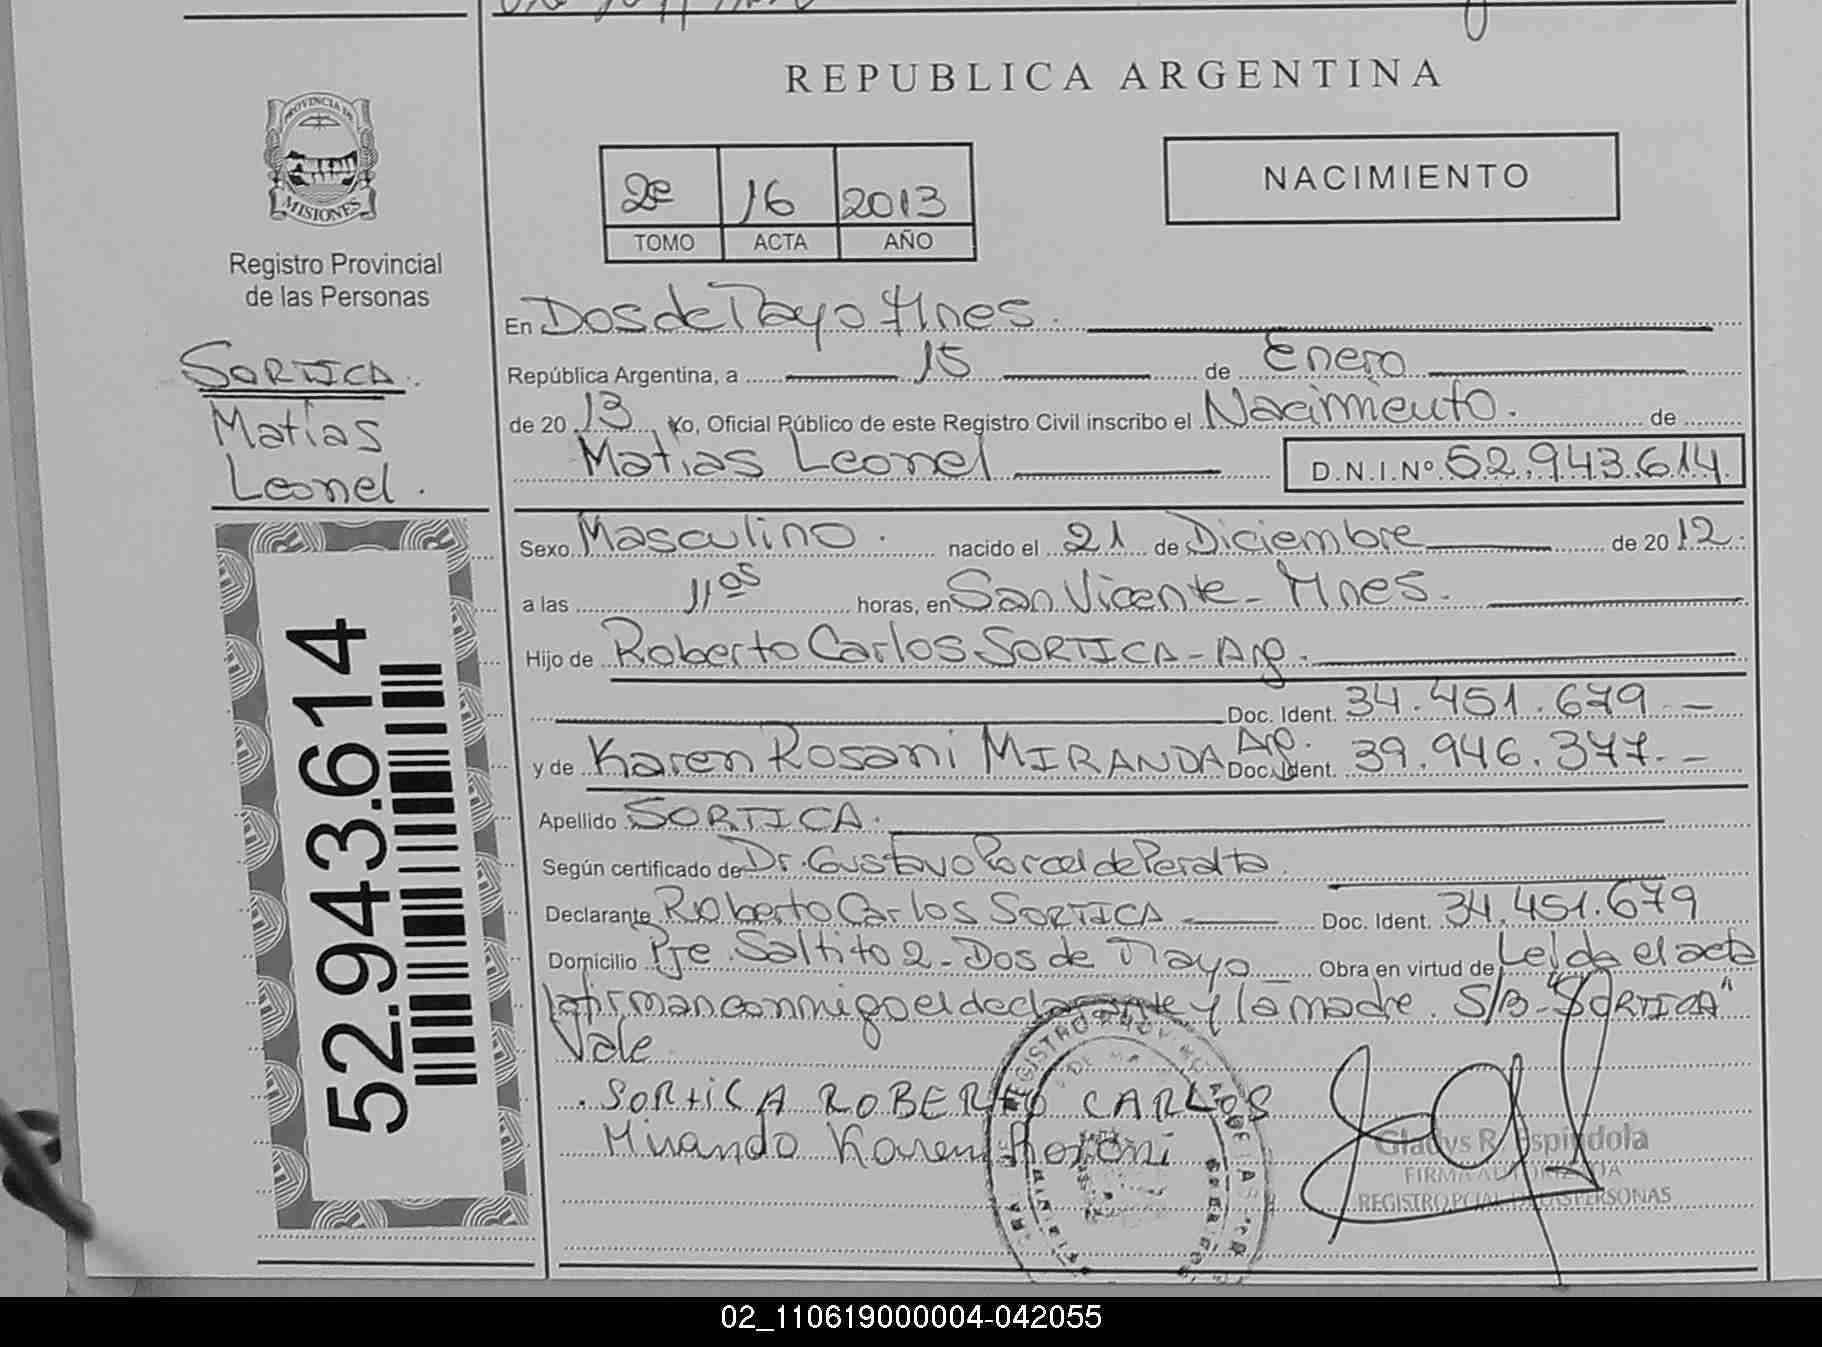 REPUBLICA ARGENTINA
PROVINCIA DE
MISIONES
Registro Provincial
de las Personas
SORTICA.
Matías
Leonel.
52.943.614
2e 16 2013
TOMO ACTA AÑO
NACIMIENTO
En Dos de Mayo Mnes.
República Argentina, a 15 de Enero
de 2013 Yo, Oficial Público de este Registro Civil inscribo el Nacimiento. de
Matias Leonel D.N.I.Nº 52.943.614.
Sexo Masculino. nacido el 21 de Diciembre de 2012.
a las 11 05 horas, en San Vicente - Mnes.
Hijo de Roberto Carlos SORTICA - Arg.
Doc. Ident. 34.451.679.-
y de Karen Rosani MIRANDA Arg. Doc. Ident. 39.946.377.-
Apellido SORTICA.
Según certificado de Dr. Gustavo Porcel de Peralta.
Declarante Roberto Carlos SORTICA Doc. Ident. 34.451.679
Domicilio Pje. Saltito 2 - Dos de Mayo Obra en virtud de Leída el acta
la firman conmigo el declarante y la madre. S/B "SORTICA"
Vale
. SORTICA ROBERTO CARLOS
Miranda Karen Rosani
Gladys R. Espindola
FIRMA AUTORIZADA
REGISTRO PCIAL DE LAS PERSONAS
02_110619000004-042055